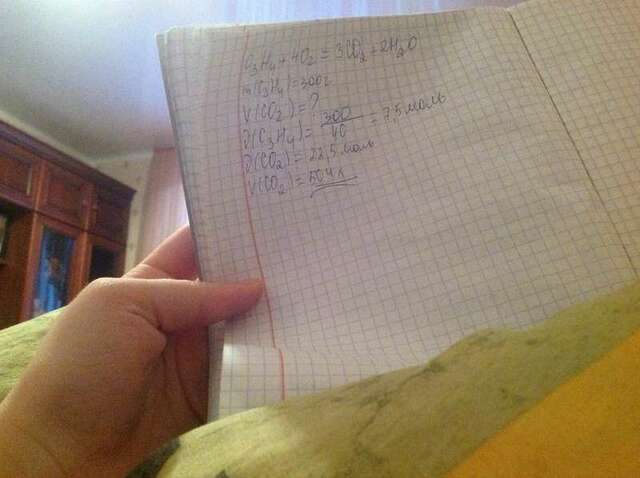 C₃H₄ + 4O₂ = 3CO₂ + 2H₂O
m(C₃H₄) = 300г
V(CO₂) = ?
ν(C₃H₄) = 300/40 = 7,5 моль
ν(CO₂) = 22,5 моль
V(CO₂) = 504 л